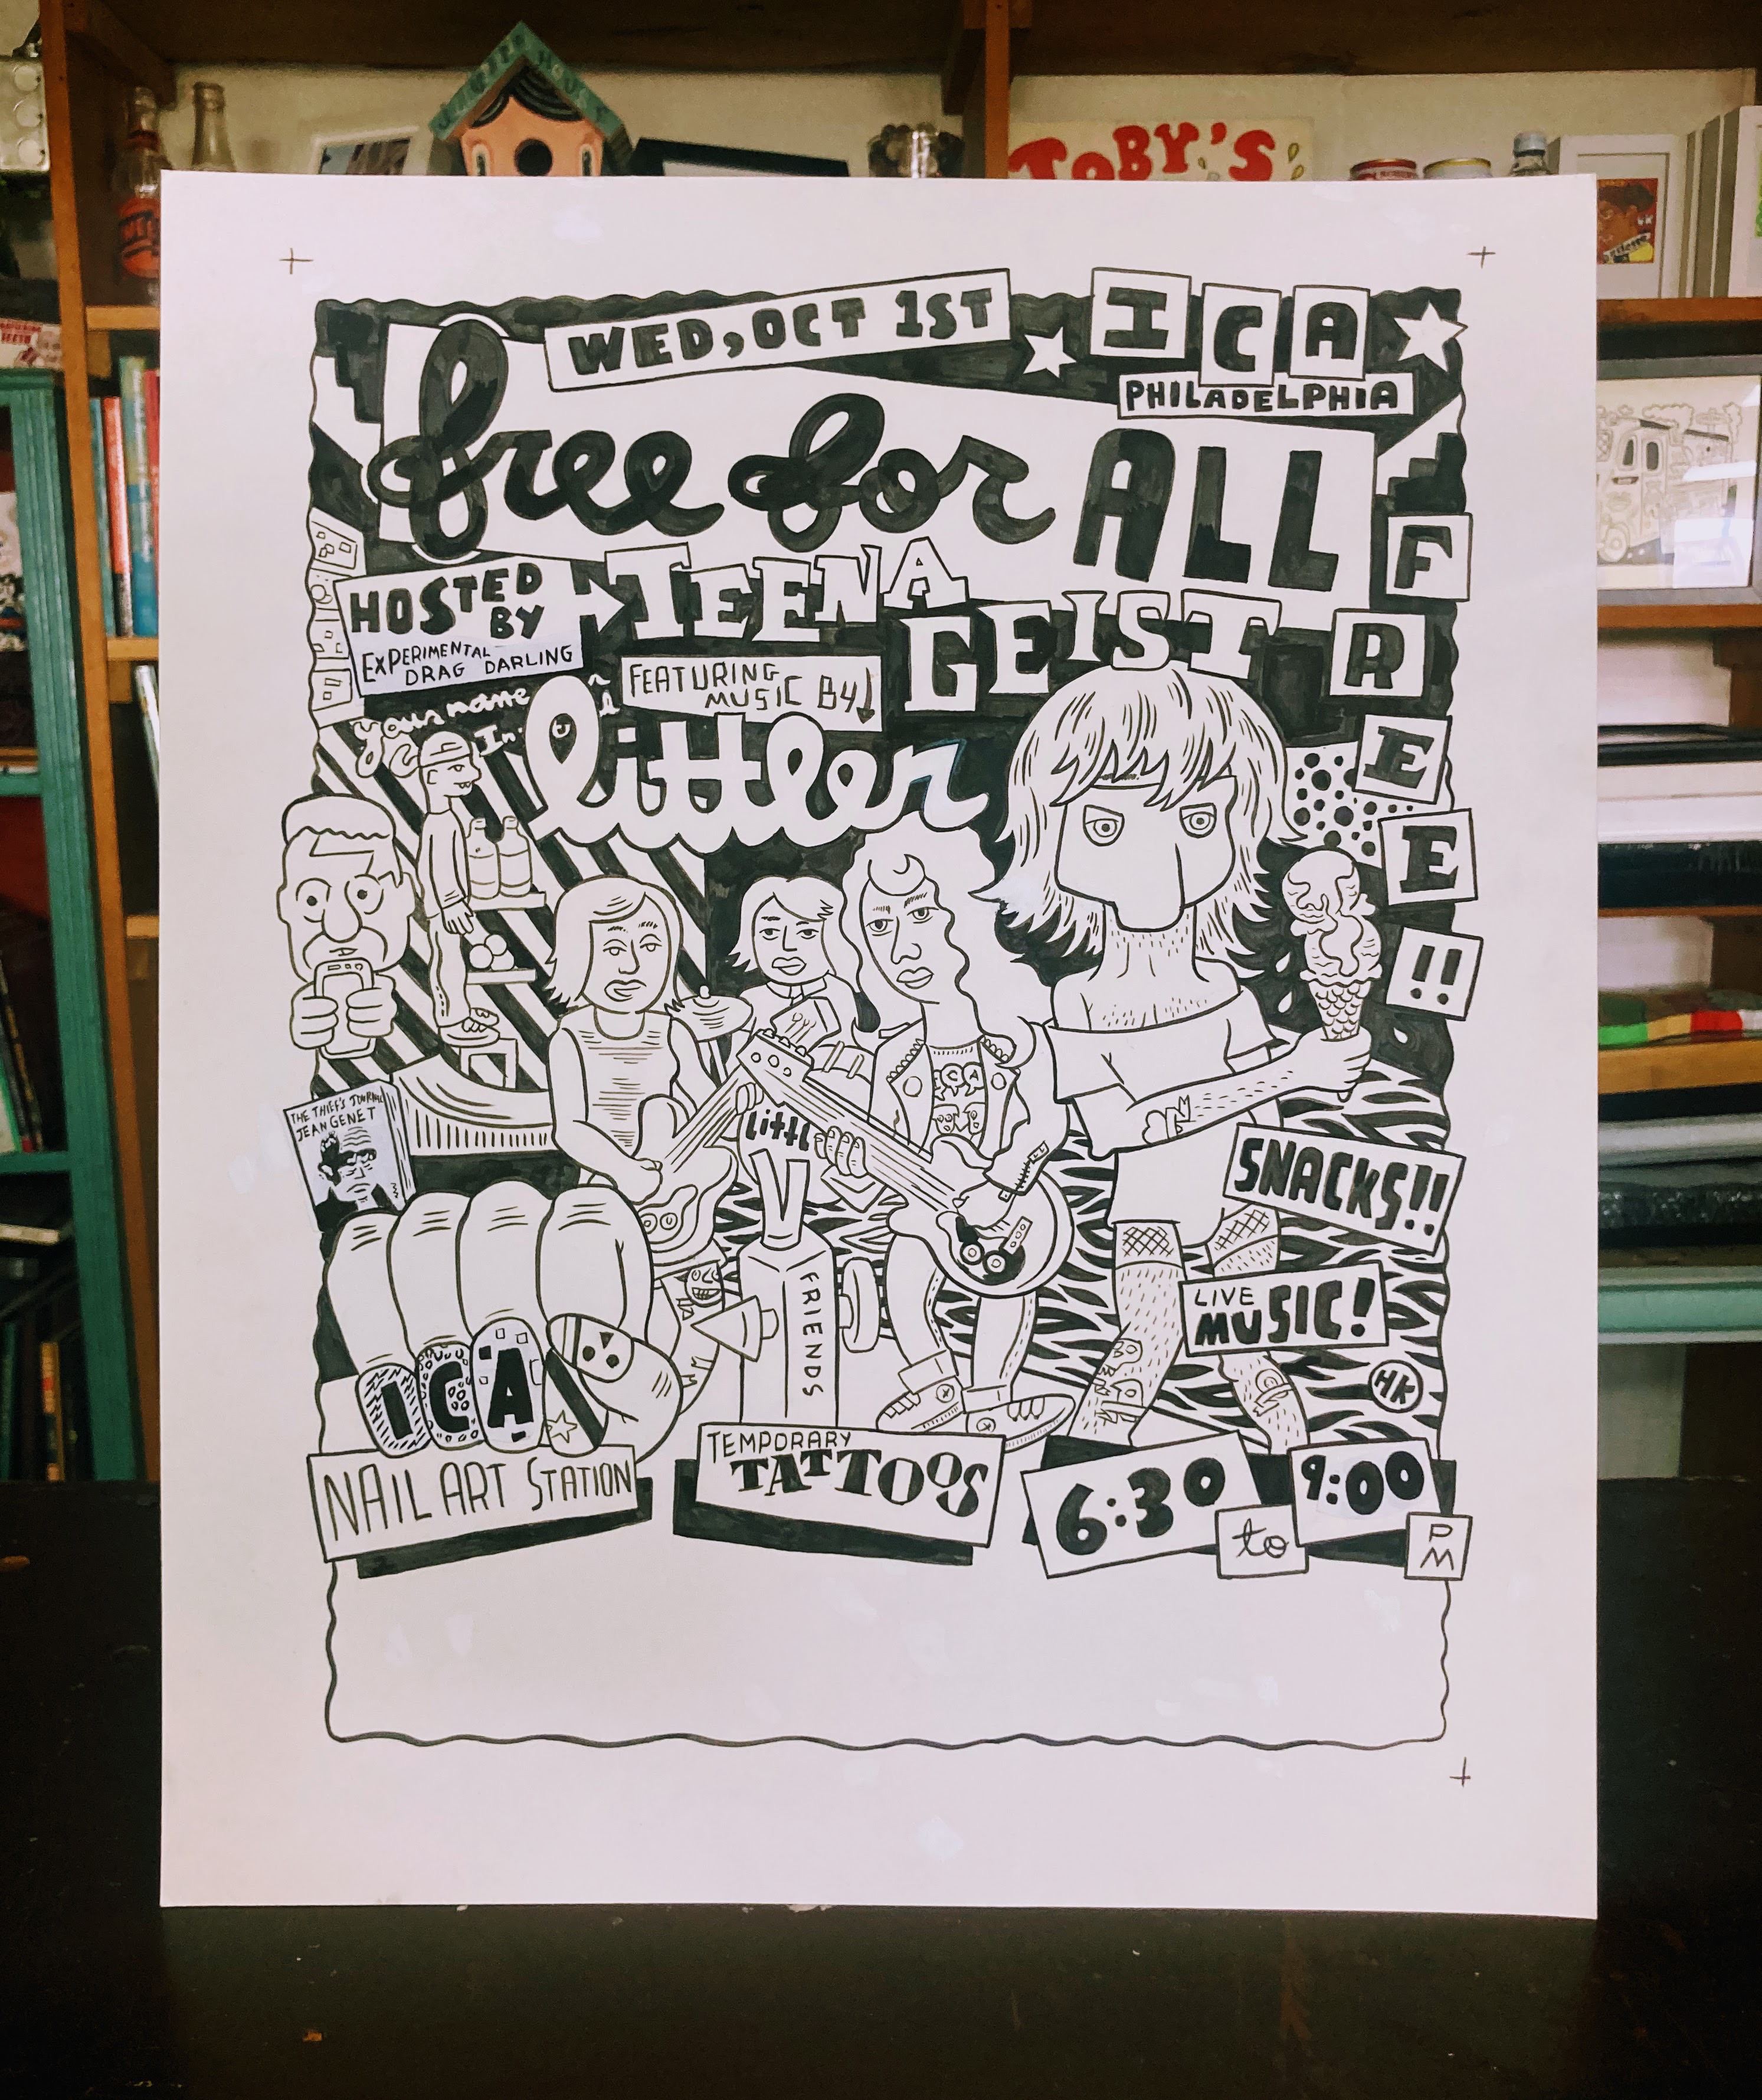 TOBY'S
WED, OCT 1ST
ICA
PHILADELPHIA
free for ALL
FREE!!
HOSTED
BY
EXPERIMENTAL
DRAG DARLING
TEENA
GEIST
FEATURING
MUSIC BY
your name
In
littler
THE THIEF'S JOURNAL
JEAN GENET
ICA
Littl
SNACKS!!
FRIENDS
LIVE
MUSIC!
HK
ICA
NAIL ART STATION
TEMPORARY
TATTOOS
6:30 to 9:00 PM